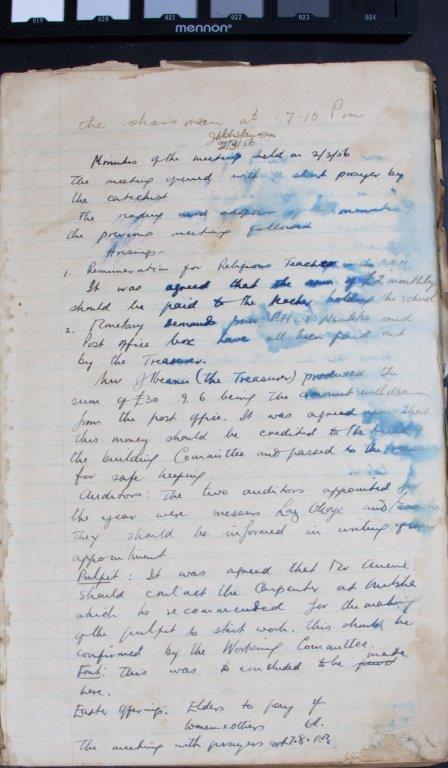 019 020 021 022 023 024
mennon
the chairman at 7.10 Pm
2/3/56
Minutes of the meeting held on 2/3/56
The meeting opened with a short prayer by
the catechist
The reading and adoption of the minutes of
the previous meeting followed
Arisings-
1. Remuneration for Religious Teacher in the
It was agreed that the sum of £2 monthly
should be paid to the teacher holding the school
2. Monetary Demands from P.H. Nsukka and
Post office box have all been paid out
by the Treasurer.
Mr J Ibeanu (the Treasurer) produced the
sum of £30 9. 6 being the amount withdrawn
from the post office. It was agreed that
this money should be credited to the
the building Committee and passed to the treasurer
for safe keeping.
Auditors: The two auditors appointed for
the year were messers Okoye and
They should be informed in writing of their
appointment
Pulpit: It was agreed that Mr
should contact the Carpenter at Onitsha
which he recommended for the making
of the pulpit to start work. This should be
confirmed by the Working Committee.
Font: This was to concluded to be made
here.
Easter Offerings: Elders to pay 1/
Women & others 6d.
The meeting with prayers at 7.8. P.M